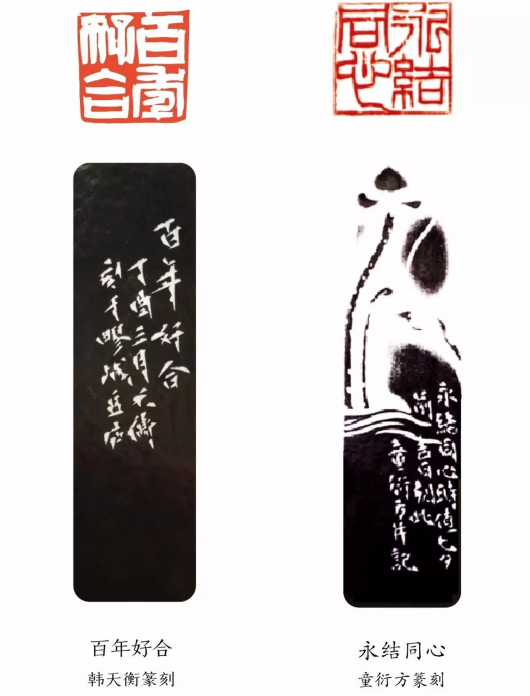 百年好合
永结同心
百年好合
丁酉三月天衡
刻于
永结同心时值七夕
前吉日刻此
童衍方并记
百年好合
韩天衡篆刻
永结同心
童衍方篆刻